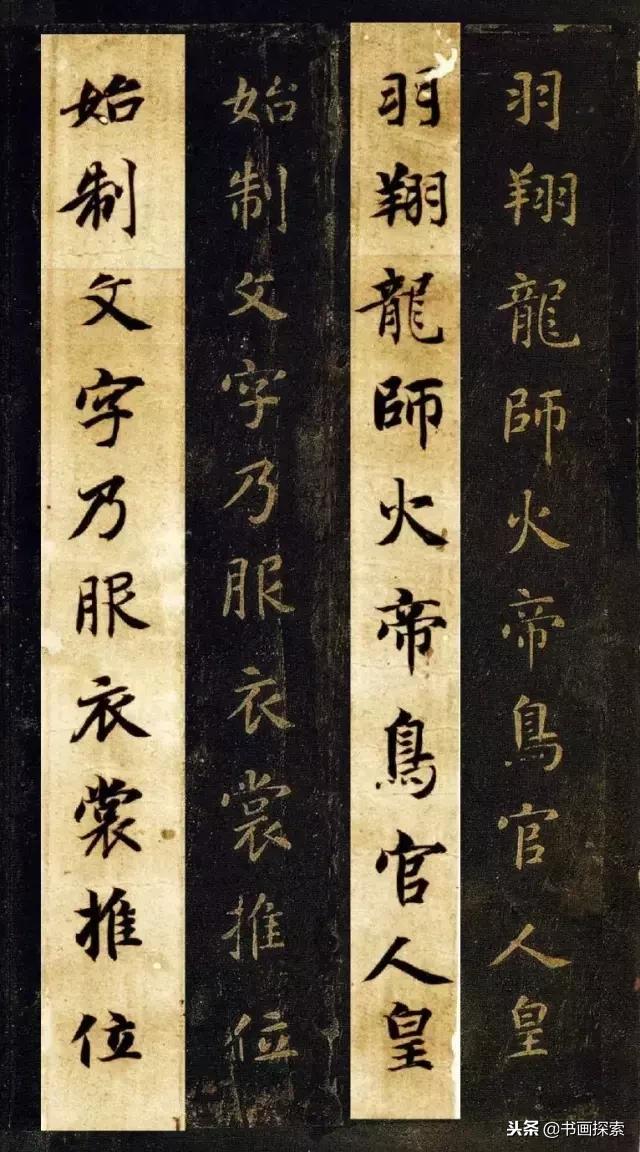 羽翔龍師火帝鳥官人皇
羽翔龍師火帝鳥官人皇
始制文字乃服衣裳推位
始制文字乃服衣裳推位
头条 @书画探索